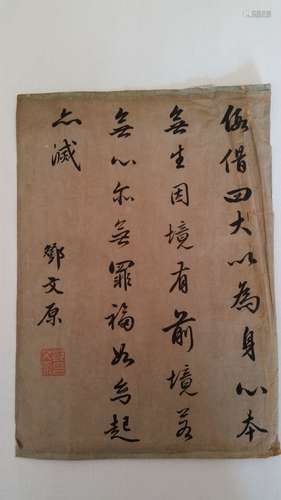 假借四大以為身心本
無生因境有前境若
無心亦無罪福如幻起
亦滅
鄧文原